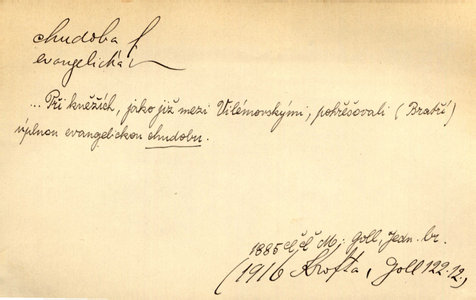 chudoba f
evangelická
... Při kněžích, jako již mezi Vilémovskými, potřešovali (Bratří)
úplnou evangelickou chudobu.
1885 ČČM; Goll, Jedn. br.
(1916 Krofta, Goll 122.12)